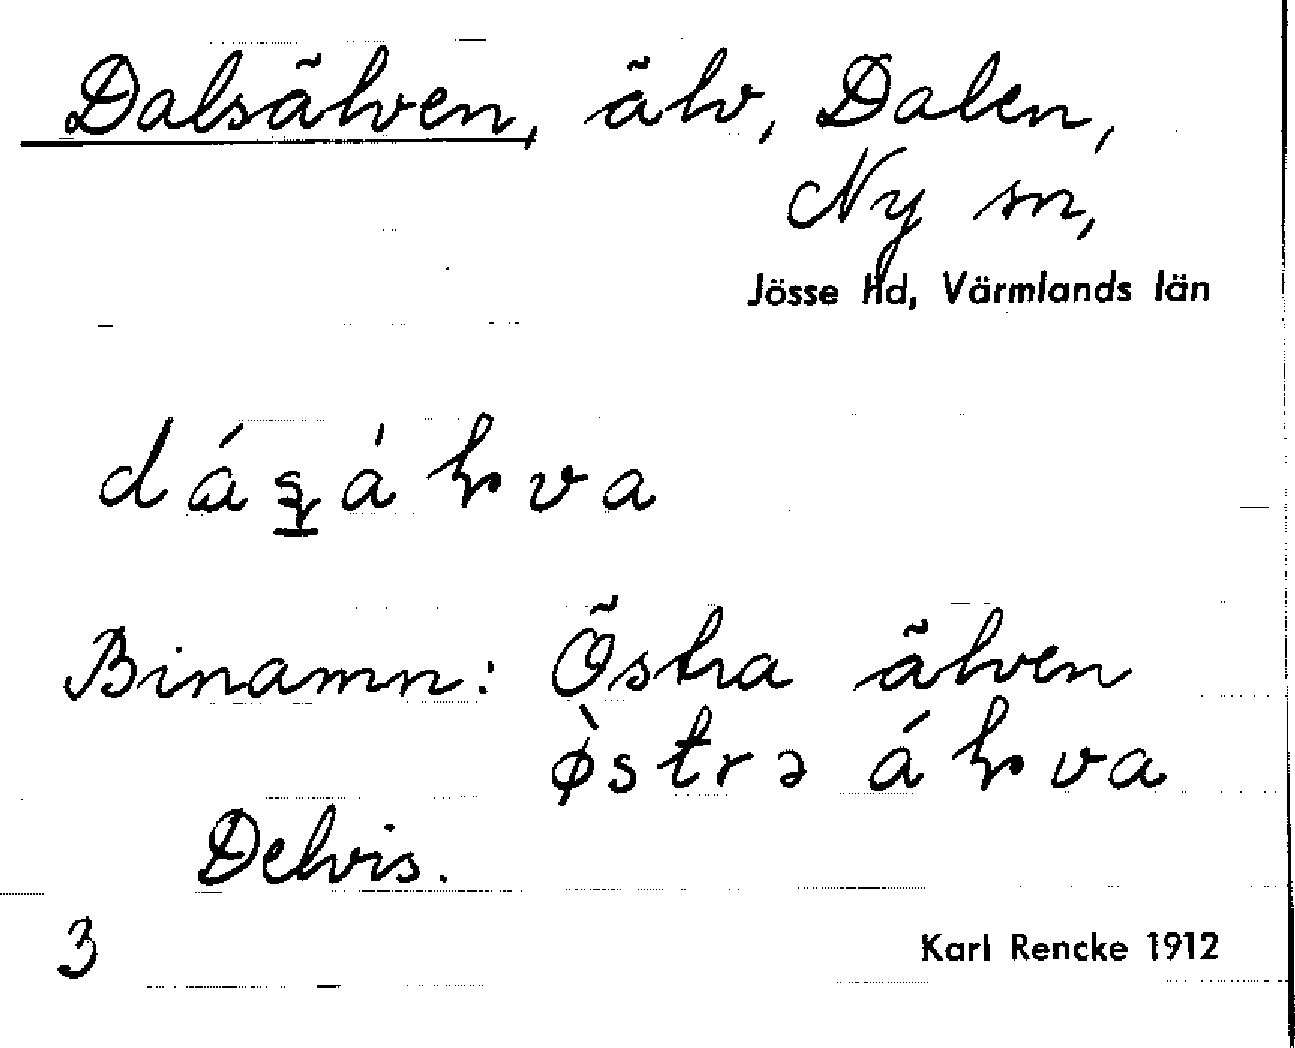 Dalsälven, älv, Dalen,
Ny sn,
Jösse Hd, Värmlands län
Binamn: Östra älven
Delvis.
3
Karl Rencke 1912